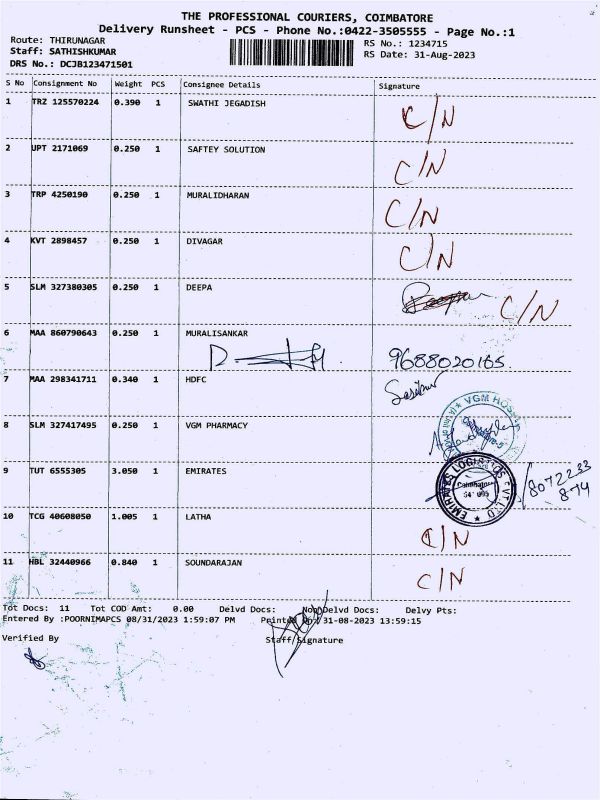 THE PROFESSIONAL COURIERS, COIMBATORE
Delivery Runsheet - PCS - Phone No.:0422-3505555 - Page No.:1
Route: THIRUNAGAR
Staff: SATHISHKUMAR
DRS No.: DCJB123471501
RS No.: 1234715
RS Date: 31-Aug-2023
S No Consignment No Weight PCS Consignee Details Signature
1 TRZ 125570224 0.390 1 SWATHI JEGADISH C/N
2 UPT 2171069 0.250 1 SAFTEY SOLUTION C/N
3 TRP 4250190 0.250 1 MURALIDHARAN C/N
4 KVT 2898457 0.250 1 DIVAGAR C/N
5 SLM 327380305 0.250 1 DEEPA C/N
6 MAA 860790643 0.250 1 MURALISANKAR
9688020165.
7 MAA 298341711 0.340 1 HDFC
8 SLM 327417495 0.250 1 VGM PHARMACY
VGM HOSPITAL
9 TUT 6555305 3.050 1 EMIRATES
EMIRATES LOGISTICS PVT LTD
Coimbatore
8072233
874
10 TCG 40608050 1.005 1 LATHA C/N
11 HBL 32440966 0.840 1 SOUNDARAJAN C/N
Tot Docs: 11 Tot COD Amt: 0.00 Delvd Docs: Non Delvd Docs: Delvy Pts:
Entered By :POORNIMAPCS 08/31/2023 1:59:07 PM Printed On: 31-08-2023 13:59:15
Verified By Staff Signature